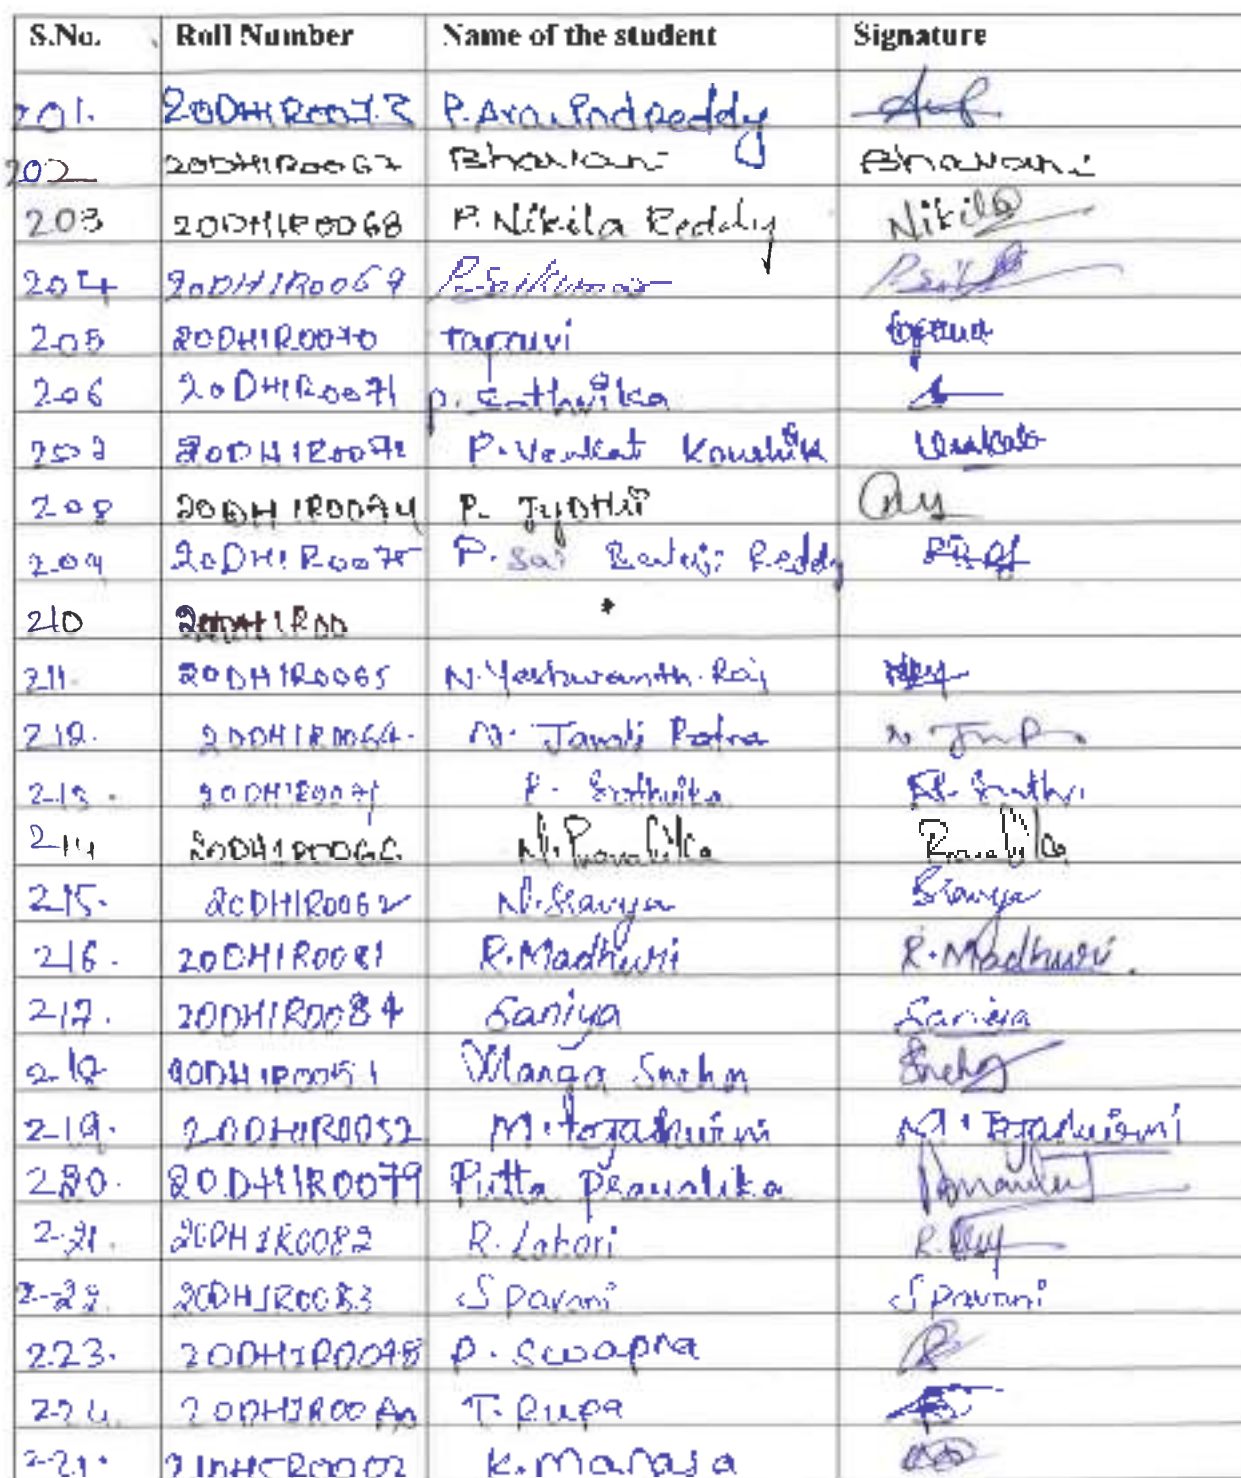 S.No. Roll Number Name of the student Signature
201. 20DH1R0073 P. Aravind Reddy
202 20DH1R0067 Bhavani Bhavani
203 20DH1R0068 P. Nikila Reddy Nikila
204 20DH1R0069 P. Saikumar
205 20DH1R0070
206 20DH1R0071 P. Sathvika
207 20DH1R0072 P. Venkat Koushik Venkat
208 20DH1R0074 P. Jyothi
209 20DH1R0075 P. Sai Reddy
210 20DH1R00
211. 20DH1R0065 N. Yashwanth Raj
212. 20DH1R0064. N. Ratna
213. 20DH1R0071 P. Srathvika
214 20DH1R0066 N. Pravalika Pravalika
215. 20DH1R0062 N. Sravya Sravya
216. 20DH1R0081 R. Madhuri R. Madhuri.
217. 20DH1R0084 Saniya Saniya
218 20DH1R0051 Manga Sneha Sneha
219. 20DH1R0052 M. M.
220. 20DH1R0079 Putta Pravalika
221. 20DH1R0082 R. Lahari R.
222. 20DH1R0083 S Pavani S Pavani
223. 20DH1R0078 P. Swapna
224. T. Rupa
K. Manasa